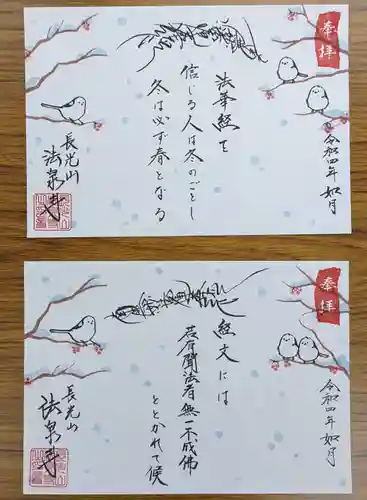 奉拝
令和四年 如月
法華経を
信じる人は冬のごとし
冬は必ず春となる
長光山
法泉寺
奉拝
令和四年 如月
経文には
若有聞法者無一不成佛
ととかれて候
長光山
法泉寺